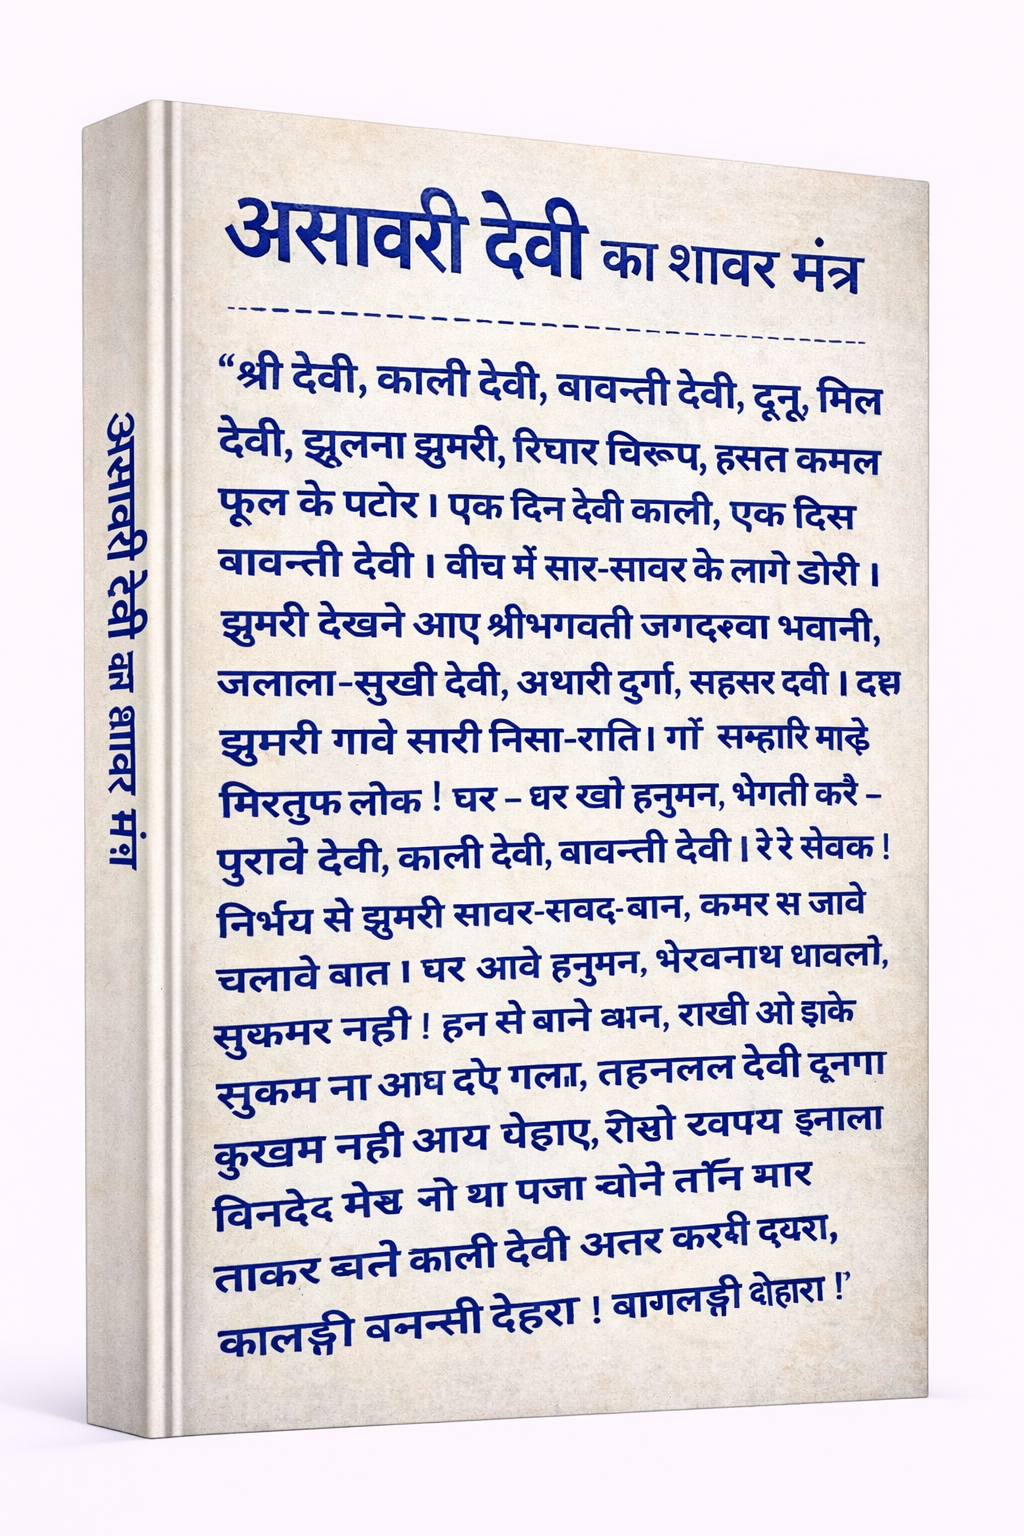 असावरी देवी का शावर मंत्र
“श्री देवी, काली देवी, बावन्ती देवी, दूनू, मिल
देवी, झूलना झुमरी, रिघार विरूप, हसत कमल
फूल के पटोर । एक दिन देवी काली, एक दिस
बावन्ती देवी । वीच में सार-सावर के लागे डोरी ।
झुमरी देखने आए श्रीभगवती भवानी,
जलाला-सुखी देवी, अथारी दुर्गा, सहसर दवी ।
झुमरी गावे सारी निसा-राति । गों सम्हारि
मिरतुफ लोक ! घर – घर खो हनुमन, भेगती करै –
पुरावे देवी, काली देवी, बावन्ती देवी । रे रे सेवक !
निर्भय से झुमरी सावर-सवद-बान, कमर स जावे
चलावे वात । घर आवे हनुमन, भेरवनाथ धावलो,
सुकमर नही ! हन से बाने राखी ओ
सुकम ना दऐ तहनलल देवी दूनगा
नही आय येहाए, इनाला
विनदेद नो था पजा मार
ताकर काली देवी अतर
देहरा !
असावरी देवी का मंत्र